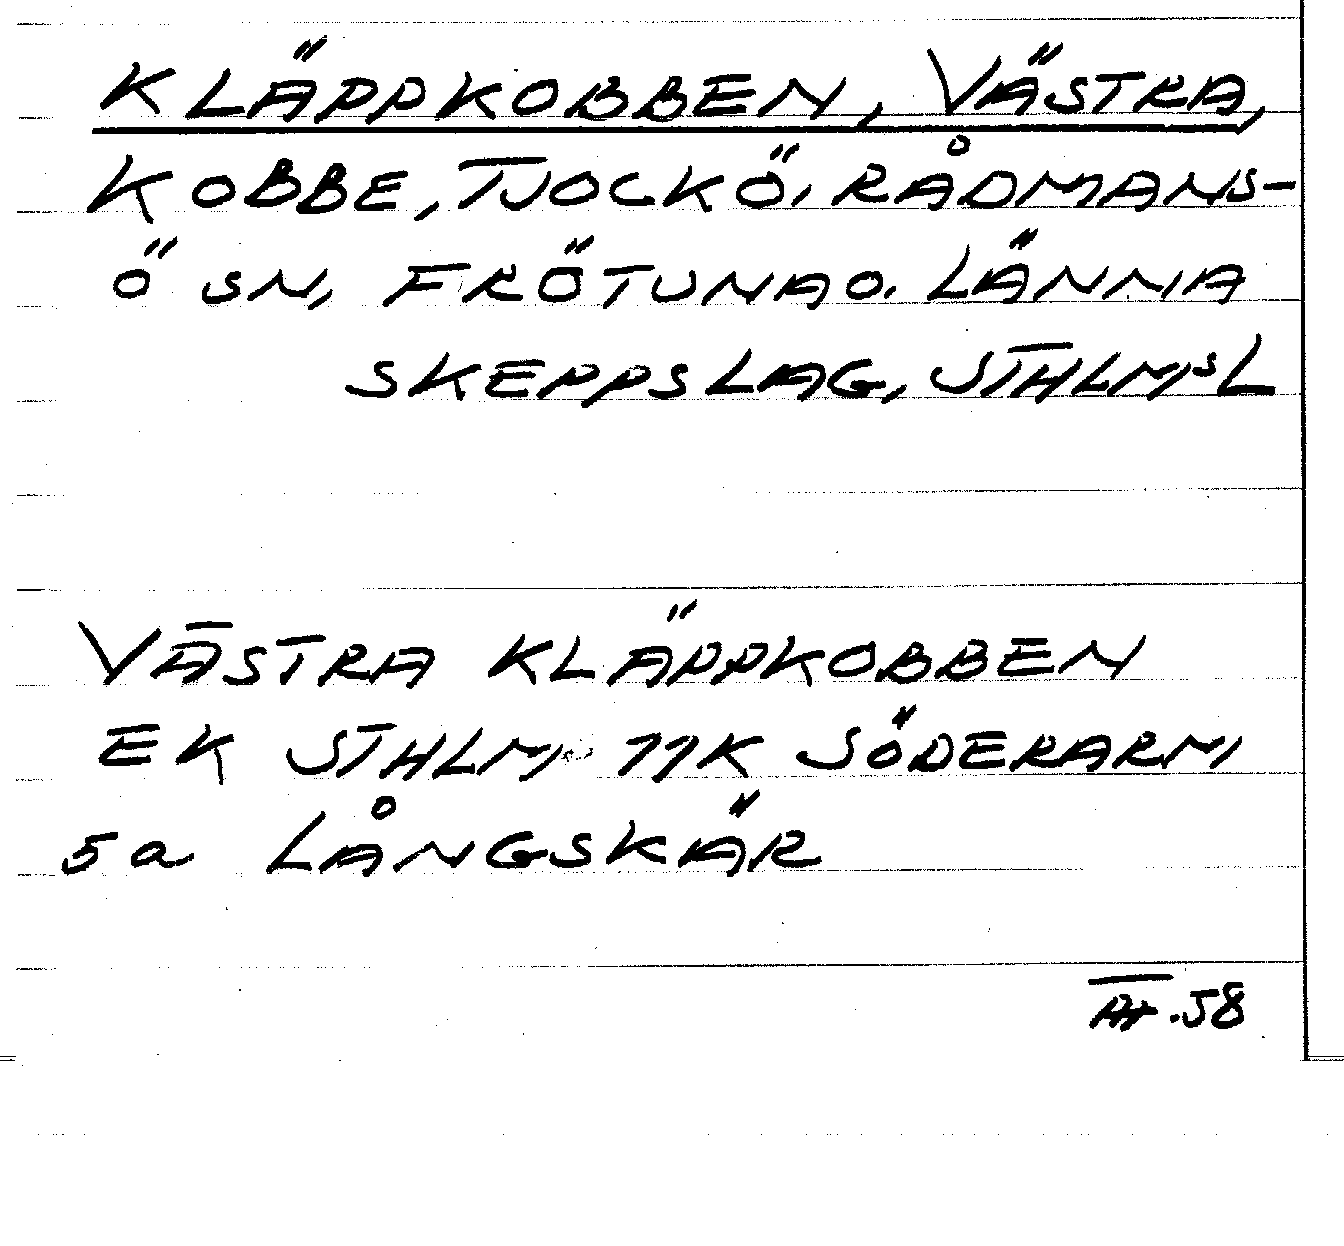 KLÄPPKOBBEN, VÄSTRA,
KOBBE, TJOCKÖ, RÅDMANS-
Ö SN, FRÖTUNA O. LÄNNA
SKEPPSLAG, STHLMSL
VÄSTRA KLÄPPKOBBEN
EK STHLM 11K SÖDERARM
5a LÅNGSKÄR
.58